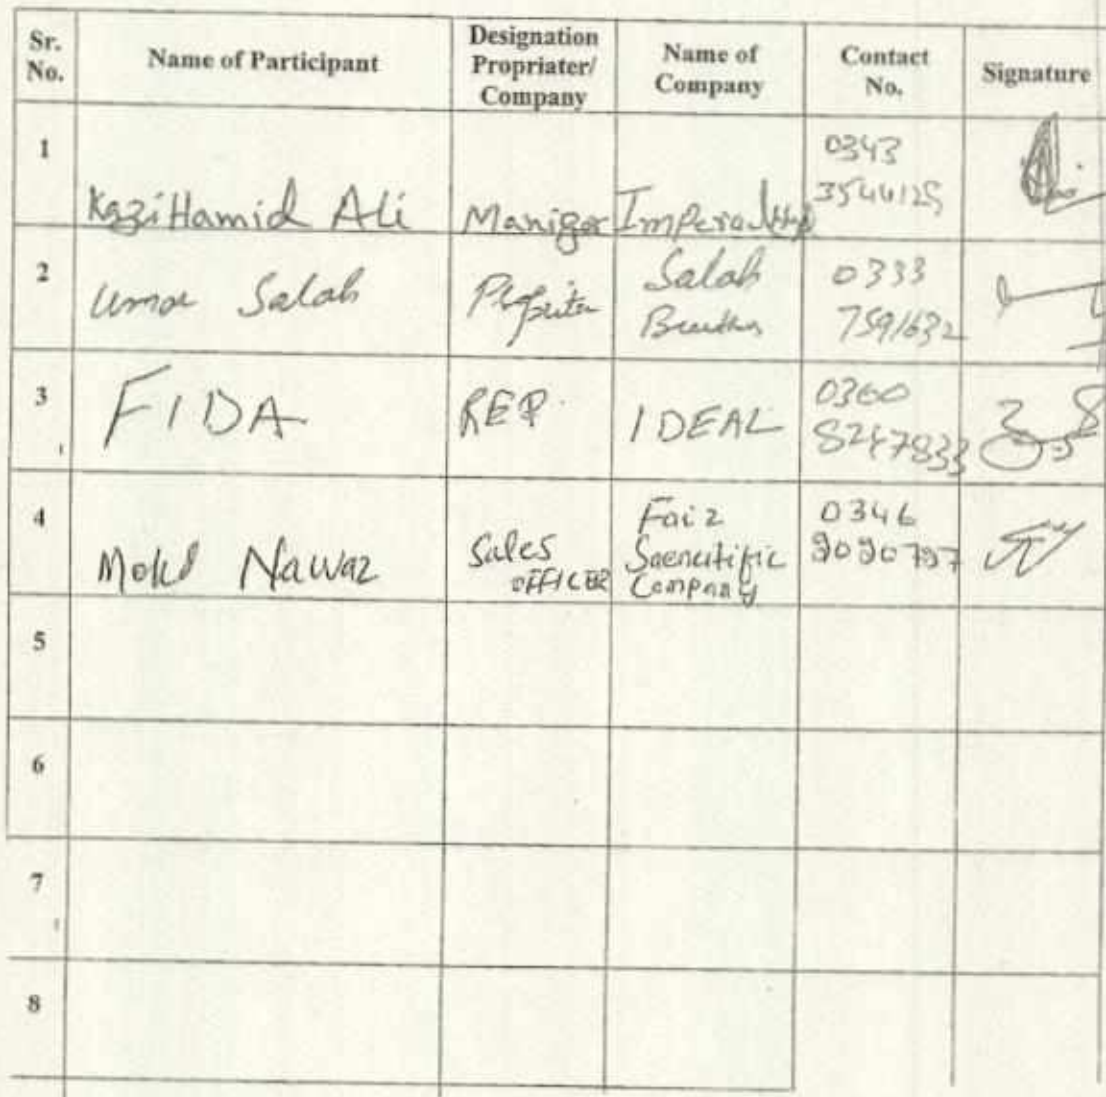 Sr. No. Name of Participant Designation Propriater/ Company Name of Company Contact No. Signature
1 Kazi Hamid Ali Maniger 0343 3544125
2 Umar Salah Salah 0333 7591632
3 FIDA REP. IDEAL 0300 8247833
4 Mohd Nawaz Sales OFFICER Faiz Saencitific Company 0346 9090797
5
6
7
8